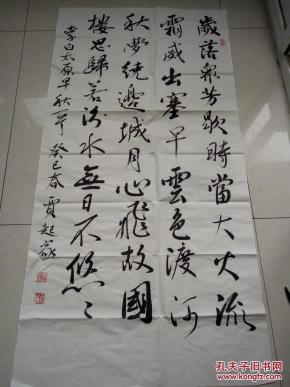 歲落衆芳歇時當大火流
霜威出塞早雲色渡河
秋夢繞邊城月心飛故國
樓思歸若汾水無日不悠〻
李白太原早秋一首 癸巳春 賈起家
孔夫子旧书网